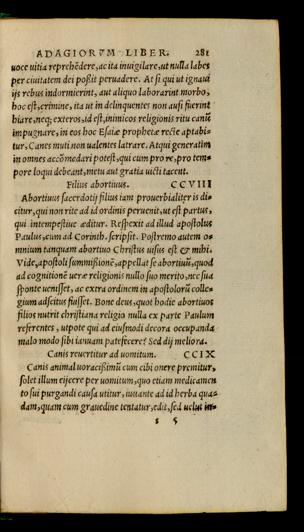 ADAGIORVM LIBER. 281
uoce uitia reprehẽdere, ac ita inuigilare, ut nulla labes
per ciuitatem dei poßit peruadere. At si qui ut ignaui
ijs rebus indormierint, aut aliquo laborarint morbo,
hoc est, crimine, ita ut in delinquentes non ausi fuerint
hiare, neq; exteros, id est, inimicos religionis ritu canũ
impugnare, in eos hoc Esaiæ prophetæ recte aptabi-
tur, Canes muti non ualentes latrare. Atqui generatim
in omnes accõmodari potest, qui cum pro re, pro tem-
pore loqui debeant, metu aut gratia uicti tacent.
Filius abortiuus. CCVIII
Abortiuus sacerdotij filius iam prouerbialiter is di-
citur, qui non rite ad id ordinis peruenit, ut est partus,
qui intempestiue æditur. Respexit ad illud apostolus
Paulus, cum ad Corinth. scripsit. Postremo autem o-
mnium tanquam abortiuo Christus uisus est & mihi.
Vide, apostoli summißionẽ, appellat se abortiuũ, quod
ad cognitionẽ ueræ religionis nullo suo merito, nec sua
sponte uenisset, ac extra ordinem in apostolorũ colle-
gium adscitus fuisset. Bone deus, quot hodie abortiuos
filios nutrit christiana religio nulla ex parte Paulum
referentes, utpote qui ad eiusmodi decora occupanda
malo modo sibi ianuam patefecere? Sed dij meliora.
Canis reuertitur ad uomitum. CCIX
Canis animal uoracißimũ cum cibi onere premitur,
solet illum eijcere per uomitum, quo etiam medicamen
to sui purgandi causa utitur, iuuante ad id herba qua-
dam, quam cum grauedine tentatur, edit, sed uelut in-
s 5